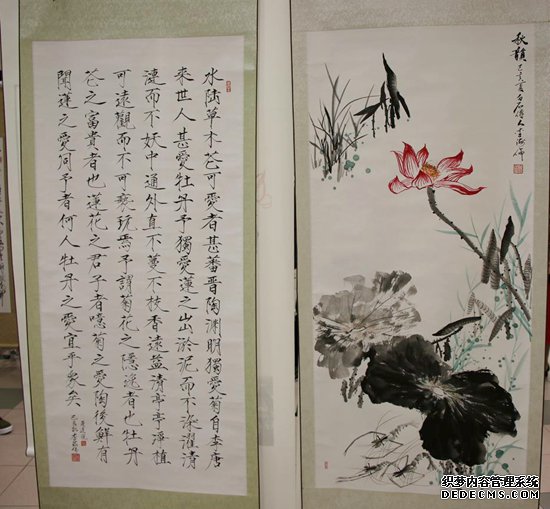 水陸草木花可愛者甚蕃晋陶渊明獨愛菊自李唐
来世人甚愛牡丹予獨愛蓮之出淤泥而不染濯清
漣而不妖中通外直不蔓不枝香遠益清亭亭淨植
可遠觀而不可褻玩焉予謂菊花之隱逸者也牡丹
花之富貴者也蓮花之君子者噫菊之愛陶後鮮有
聞蓮之愛同予者何人牡丹之愛宜乎衆矣
秋韻
织梦内容管理系统
DEDECMS.COM